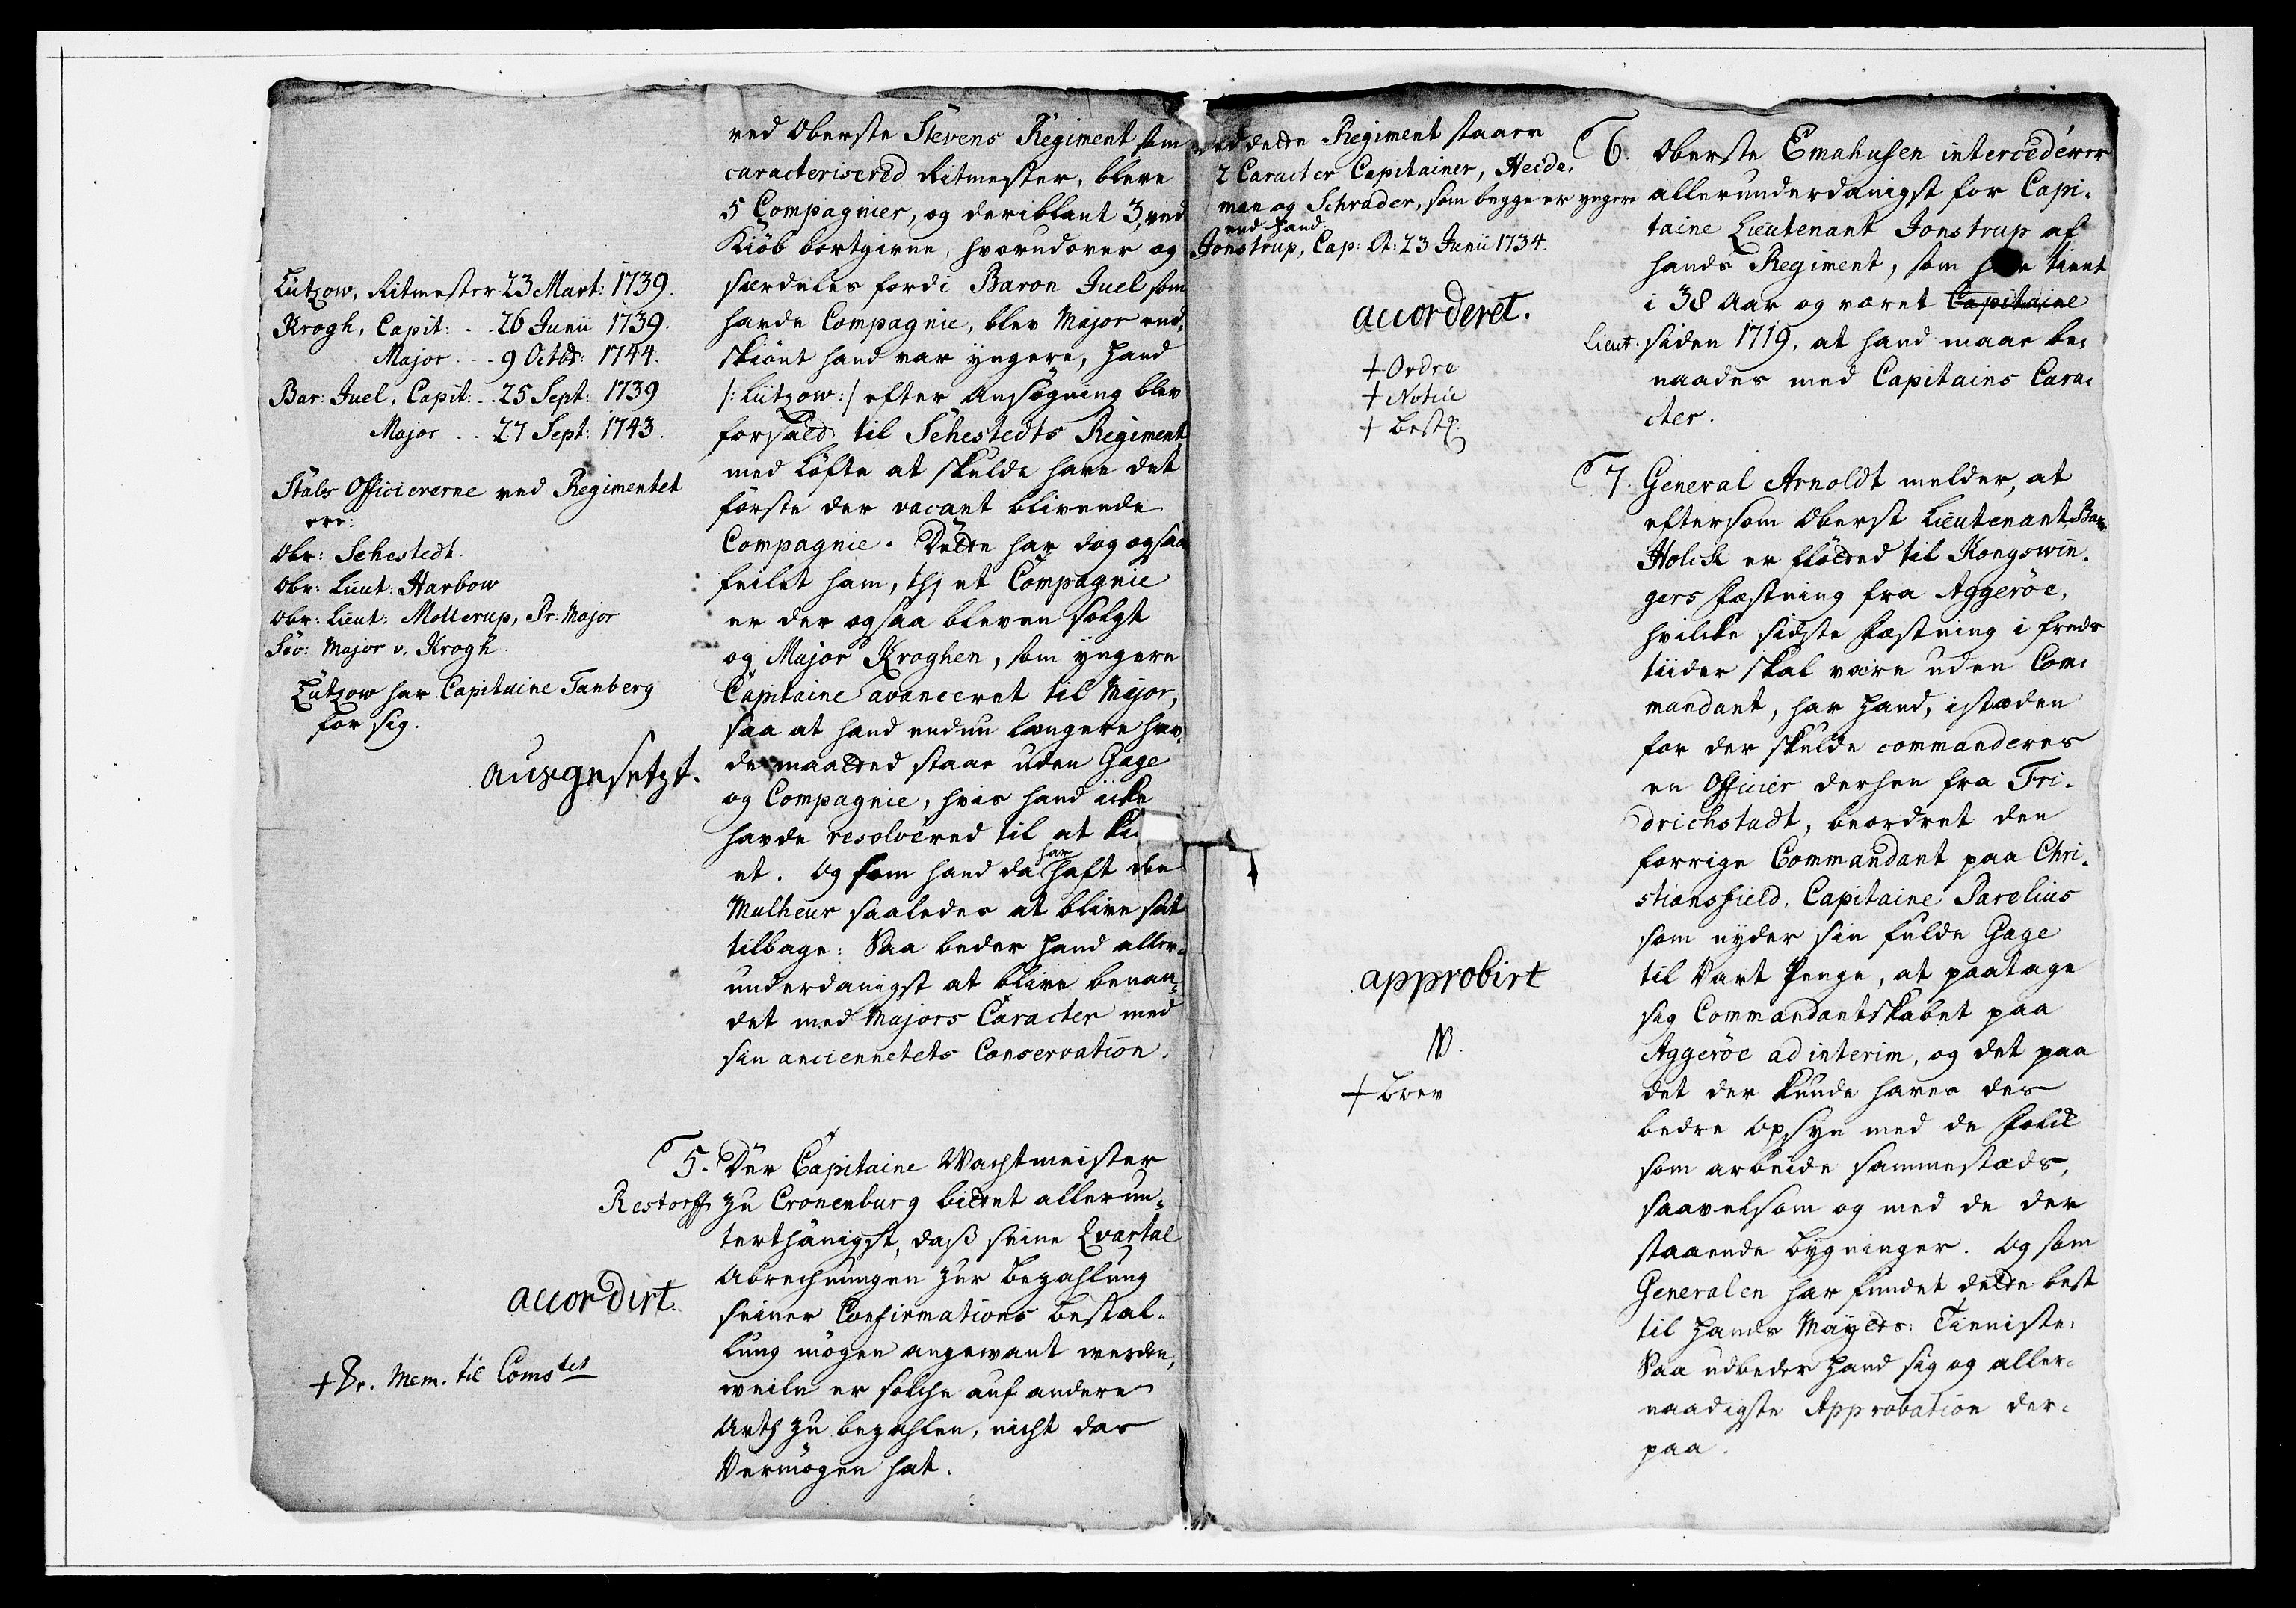 ved Oberste Stevens Regiment som
caracteriserd Ritmester, bleve
5 Compagnier, og deriblant 3, ved
Kiöb bortgivne, hvorudover og
særdeles fordi Baron Juel som
havde Compagnie, blev Major end¬
skiönt hand var yngere, Hand
/: Lützow :/ efter Ansögning blev
forsat til Sehestedts Regiment
med Löfte at skulde have det
förste der vacant blivende
Compagnie. Dette har dog ogsaa
feilet ham, thj et Compagnie
er der ogsaa bleven solgt
og Major Kroghen, som yngere
Capitaine avanceret til Major,
saa at hand endnu længere hav¬
de maatted staae uden Gage
og Compagnie, hvis hand icke
havde resolvered til at
et. Og som hand da har haft den
Malheur saaledes at blive sat
tilbage: Saa beder Hand aller¬
underdanigst at blive benaa¬
det med Majors Caracter med
sin anciennetets Conservation.
Lützow, Ritmester 23 Mart: 1739.
Krogh, Capit: . . 26 Junii 1739.
Major . . . 9 Octbr: 1744.
Bar: Juel, Capit: . . 25 Sept: 1739
Major . . . 27 Sept: 1743.
Stabs Officiererne ved Regimentet
ere:
Obr: Sehestedt.
Obr: Lieut: Harbow
Obr: Lieut: Mollerup, Pr. Major
Sec: Major v. Krogh.
Lützow har Capitaine Tanberg
for sig.
ausgesetzt.
5. Der Capitaine Wachtmeister
Restorff zu Cronenburg bittet allerun¬
terthänigst, daß seine Qvartal
Abrechnungen zur Bezahlung
seiner Confirmations Bestal¬
lung mögen angewant werden,
weiln er solche auf andere
Arth zu bezahlen, nicht das
Vermögen hat.
accordirt.
+ Pr. Mem. til Comstet
ved dette Regiment staaer
2 Caracter Capitainer, Heide¬
man og Schrader, som begge er yngere
end Hand.
Jonstrup, Cap: Lt: 23 Junii 1734.
accorderet.
+ Ordre
+ Notice
+ Best:
6. Oberste Emahusen intercederer
allerunderdanigst for Capi¬
taine Lieutenant Jonstrup af
hands Regiment, som tient
i 38 Aar og været Capitaine
Lieut. siden 1719, at hand maae be¬
naades med Capitains Cara¬
cter.
7. General Arnoldt melder, at
eftersom Oberst Lieutenant Bar:
Holck er flötted til Kongswin¬
gers Fæstning fra Aggeröe,
hvilcke sidste Fæstning i freds
tiider skal være uden Com¬
mandant, har Hand, istæden
for der skulde commanderes
en Officier derhen fra Fri¬
drichstadt, beordret den
forrige Commandant paa Chri¬
stiansfield, Capitaine Parelius
som nyder sin fulde Gage
til Vart Penge, at paatage
sig Commandantskabet paa
Aggeröe ad interim, og det paa
det der kunde haves des
bedre Opsyn med de Folck
som arbeide sammestæds,
saavelsom og med de der
staaende bygninger. Og som
Generalen har fundet dette best
til Hands Mayts: Tieniste:
Saa udbeder Hand sig og aller¬
naadigste Approbation der¬
paa.
approbirt
NB.
+ Brev